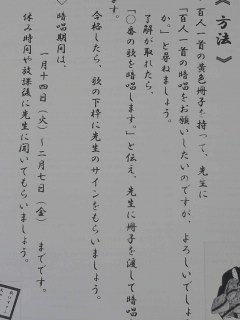 《方法》
百人一首の黄色冊子を持って、先生に
「百人一首の暗唱をお願いしたいのですが、よろしいでしょ
か。」と尋ねましょう。
了解が取れたら、
「〇番の歌を暗唱します。」と伝え、先生に冊子を渡して暗唱
ます。
合格したら、歌の下枠に先生のサインをもらいましょう。
》暗唱期間は、
一月十四日（火）～二月七日（金）　までです。
休み時間や放課後に先生に聞いてもらいましょう。